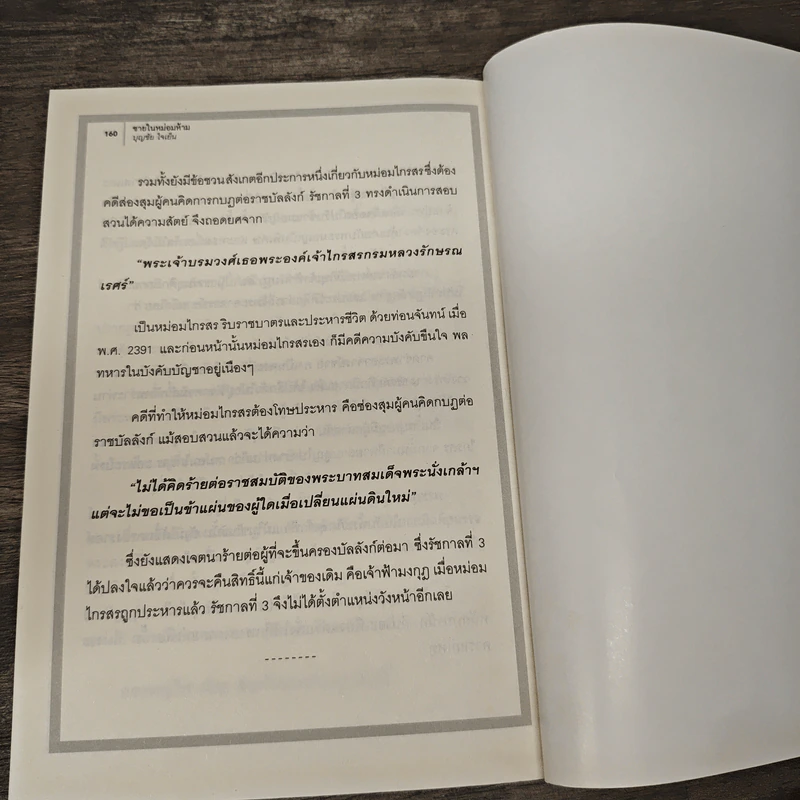 160
ชายในหม่อมห้าม
บุญชัย ใจเย็น
รวมทั้งยังมีข้อชวนสังเกตอีกประการหนึ่งเกี่ยวกับหม่อมไกรสรซึ่งต้อง
คดีส่องสุมผู้คนคิดการกบฏต่อราชบัลลังก์ รัชกาลที่ 3 ทรงดำเนินการสอบ
สวนได้ความสัตย์ จึงถอดยศจาก
“พระเจ้าบรมวงศ์เธอพระองค์เจ้าไกรสรกรมหลวงรักษรณ
เรศร์”
เป็นหม่อมไกรสร ริบราชบาตรและประหารชีวิต ด้วยท่อนจันทน์ เมื่อ
พ.ศ. 2391 และก่อนหน้านั้นหม่อมไกรสรเอง ก็มีคดีความบังคับขืนใจ พล
ทหารในบังคับบัญชาอยู่เนืองๆ
คดีที่ทำให้หม่อมไกรสรต้องโทษประหาร คือซ่องสุมผู้คนคิดกบฏต่อ
ราชบัลลังก์ แม้สอบสวนแล้วจะได้ความว่า
“ไม่ได้คิดร้ายต่อราชสมบัติของพระบาทสมเด็จพระนั่งเกล้าฯ
แต่จะไม่ขอเป็นข้าแผ่นของผู้ใดเมื่อเปลี่ยนแผ่นดินใหม่”
ซึ่งยังแสดงเจตนาร้ายต่อผู้ที่จะขึ้นครองบัลลังก์ต่อมา ซึ่งรัชกาลที่ 3
ได้ปลงใจแล้วว่าควรจะคืนสิทธิ์นี้แก่เจ้าของเดิม คือเจ้าฟ้ามงกุฎ เมื่อหม่อม
ไกรสรถูกประหารแล้ว รัชกาลที่ 3 จึงไม่ได้ตั้งตำแหน่งวังหน้าอีกเลย
--------